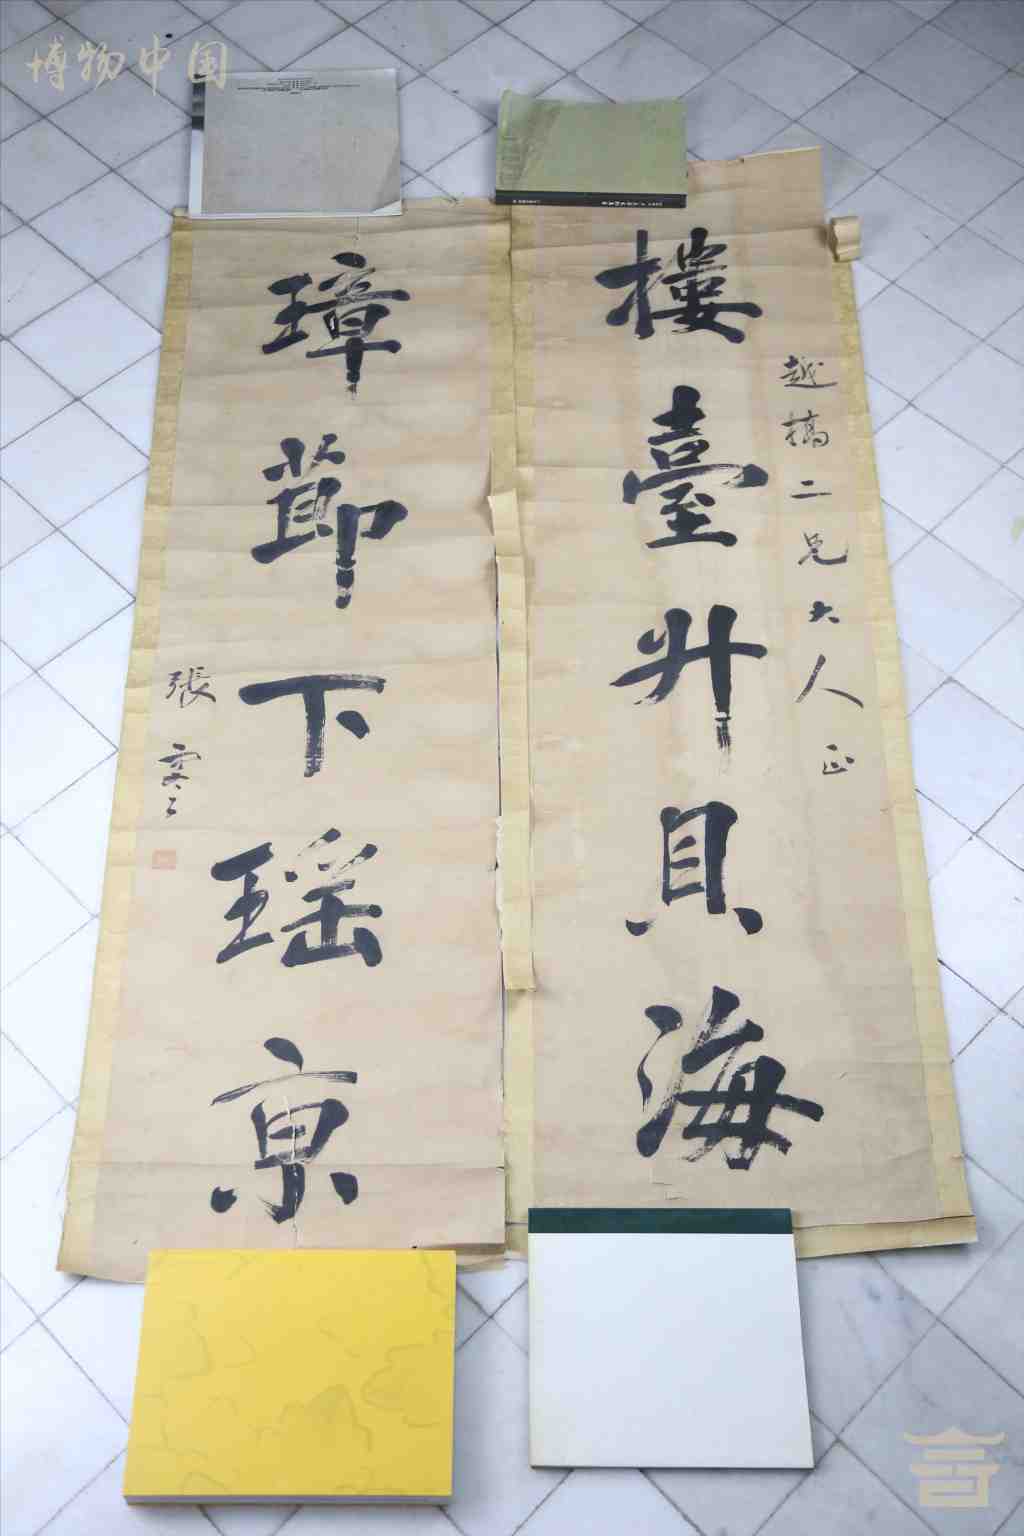 博物中国
樓臺升貝海
越橋二兄大人正
璋節下瑤京
張